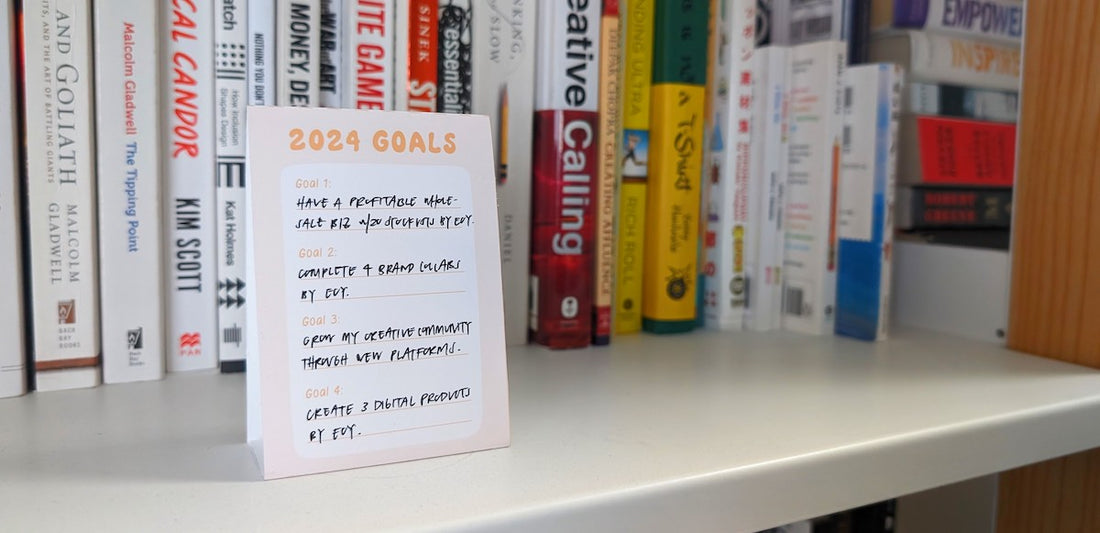 AND GOLIATH
AND THE ART OF BATTLING GIANTS
MALCOLM
GLADWELL
BACK
BAY
BOOKS
Malcolm Gladwell The Tipping Point
CAL CANDOR
KIM SCOTT
PAN
atch
How Inclusion
Shapes Design
Kat Holmes
NOTHING YOU DON'T
MONEY, DE
WAR
ART
ITE GAME
SINEK
essential
NKING,
SLOW
DANIEL
eative Calling
DEEPAK CHOPRA CREATING AFFLUENCE
NDING ULTRA
RICH ROLL
T-Shirt
EMPOWE
INSPIRE
ROBERT
GREENE
2024 GOALS
Goal 1:
HAVE A PROFITABLE WHOLE-
SALE BIZ w/20 STOCKISTS BY EOY.
Goal 2:
COMPLETE 4 BRAND COLLABS
BY EOY.
Goal 3:
GROW MY CREATIVE COMMUNITY
THROUGH NEW PLATFORMS.
Goal 4:
CREATE 3 DIGITAL PRODUCTS
BY EOY.